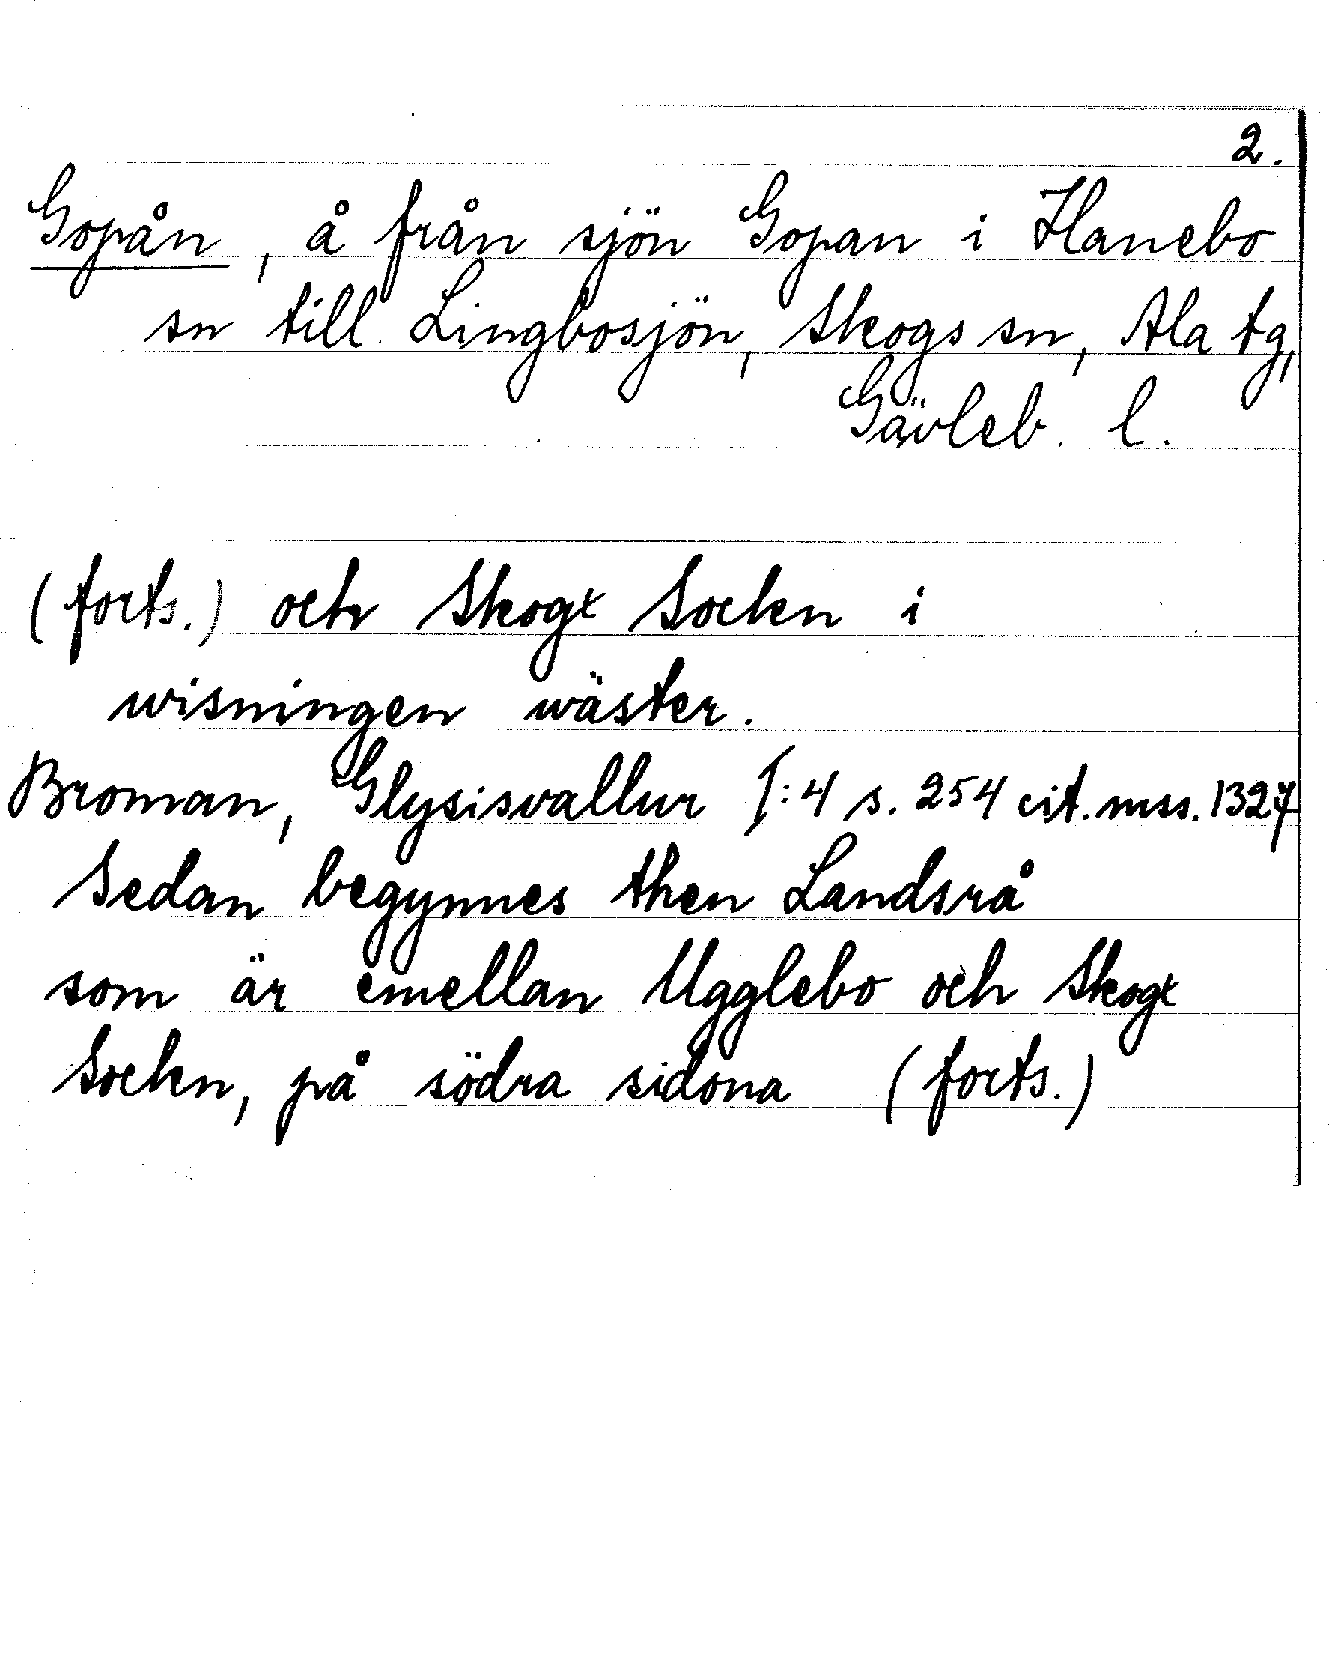 2.
Gopån, å från sjön Gopan i Hanebo
sn till Lingbosjön, Skogs sn, Ala tg,
Gävleb. l.
(forts.) och Skogx Sockn i
wisningen wäster.
Broman, Glysisvallur I:4 s. 254 cit. mss. 1327
Sedan begynnes then Landsrå
som är emellan Ugglebo och Skogx
Sockn, på södra sidona (forts.)